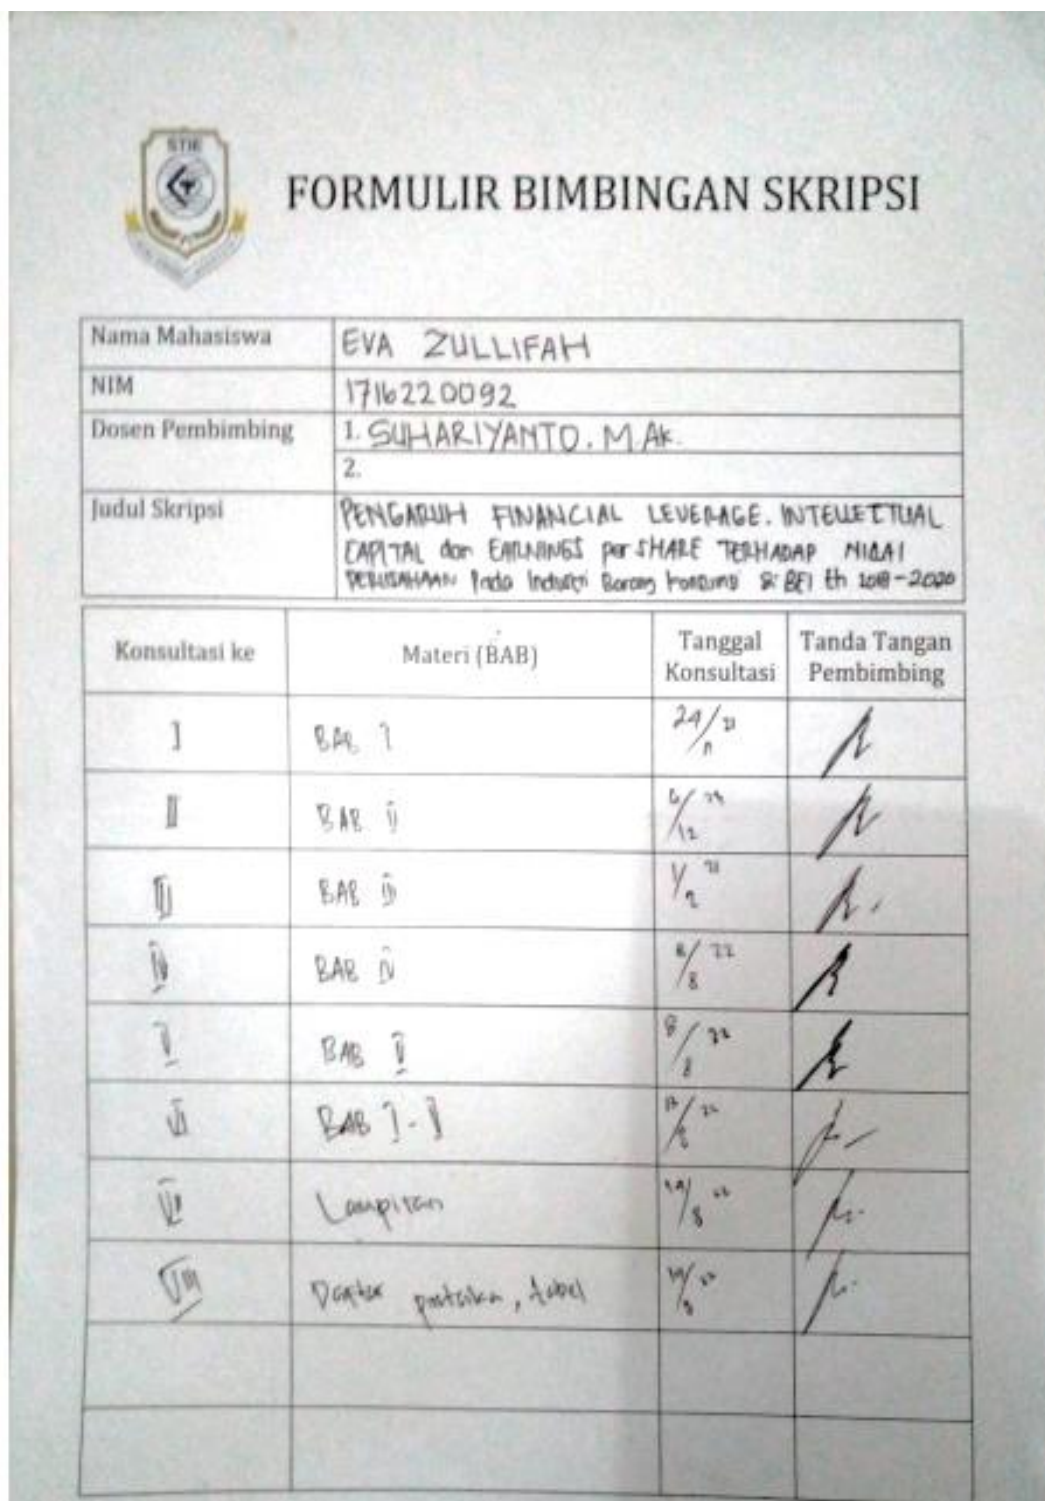 STIE
FORMULIR BIMBINGAN SKRIPSI
Nama Mahasiswa EVA ZULLIFAH
NIM 1716220092
Dosen Pembimbing 1. SUHARIYANTO. M.Ak.
2.
Judul Skripsi PENGARUH FINANCIAL LEVERAGE. INTELLECTUAL
CAPITAL dan EARNINGS per SHARE TERHADAP NILAI
PERUSAHAAN Pada Industri Barang di BEI th 2018-2020
Konsultasi ke Materi (BAB) Tanggal Konsultasi Tanda Tangan Pembimbing
I BAB I 24/11 21
II BAB II 6/12
III BAB III
IV BAB IV 8/8 22
V BAB V 8/8 22
VI BAB I - V
VII Lampiran 8
VIII Daftar pustaka, tabel